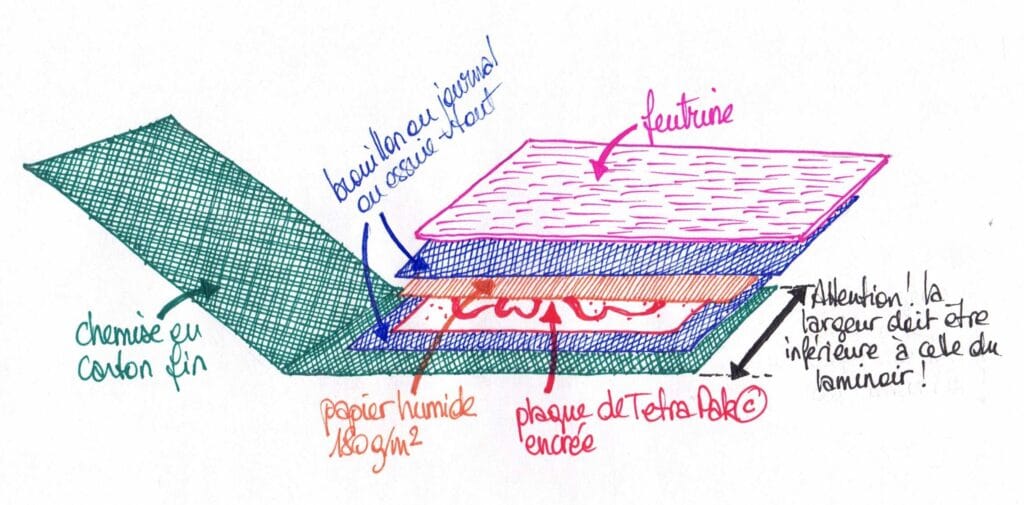 brouillon ou journal
ou essuie-tout
feutrine
chemise en
carton fin
papier humide
180g/m²
plaque de Tetra Pak©
encrée
Attention! la
largeur doit etre
inférieure à celle du
laminoir!